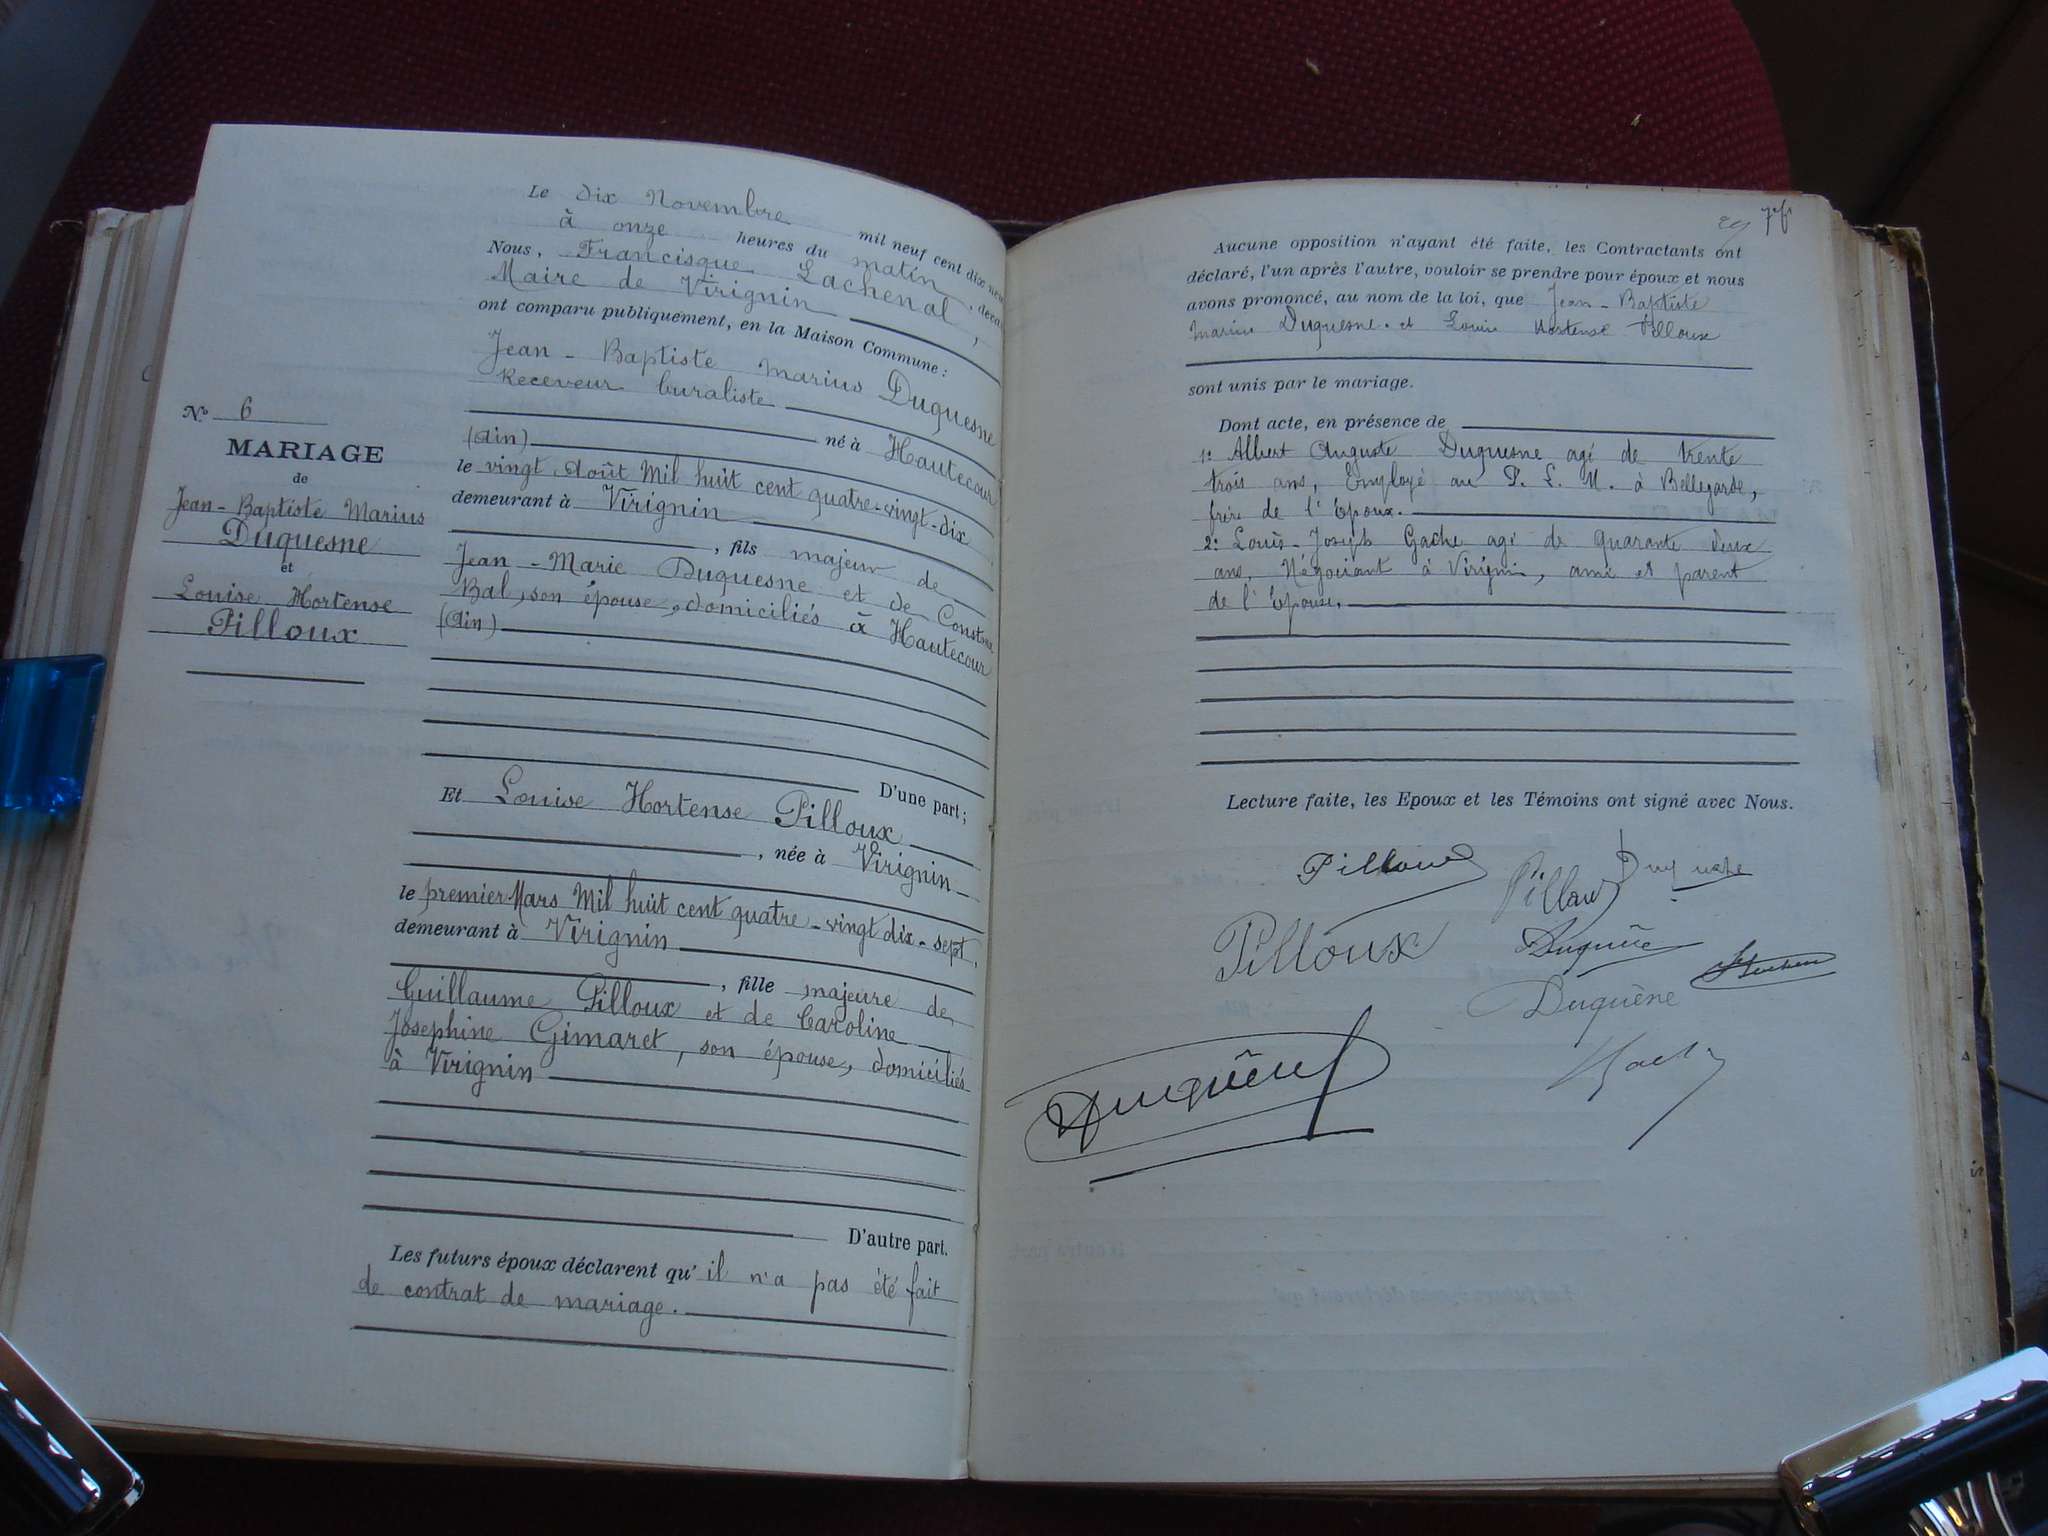 Le dix Novembre mil neuf cent dix neuf
à onze heures du matin, devant
Nous, Francisque Lachenal,
Maire de Virignin
ont comparu publiquement, en la Maison Commune :
Jean-Baptiste Marius Duquesne
Receveur buraliste
né à Hautecour
(Ain)
le vingt Août Mil huit cent quatre-vingt-dix
demeurant à Virignin
, fils majeur de
Jean-Marie Duquesne et de
Bal, son épouse, domiciliés à Hautecour
(Ain)
D'une part;
No 6
MARIAGE
de
Jean-Baptiste Marius
Duquesne
et
Louise Hortense
Pilloux
Et Louise Hortense Pilloux
, née à Virignin
le premier Mars Mil huit cent quatre-vingt dix-sept,
demeurant à Virignin
, fille majeure de
Guillaume Pilloux et de Caroline
Josephine Gimaret, son épouse, domiciliés
à Virignin
D'autre part.
Les futurs époux déclarent qu'il n'a pas été fait
de contrat de mariage.
Aucune opposition n'ayant été faite, les Contractants ont
déclaré, l'un après l'autre, vouloir se prendre pour époux et nous
avons prononcé, au nom de la loi, que Jean-Baptiste
Marius Duquesne et Louise Hortense Pilloux
sont unis par le mariage.
Dont acte, en présence de
1: Albert Auguste Duquesne agé de trente
trois ans, Employé au P. L. M. à Bellegarde,
frère de l'Epoux.
2: Louis-Joseph Gache agé de quarante deux
ans, Négociant à Virignin, ami et parent
de l'Epouse.
Lecture faite, les Epoux et les Témoins ont signé avec Nous.
Pilloux
Pilloux
Duquesne
Pilloux
Duquêne
Duquène